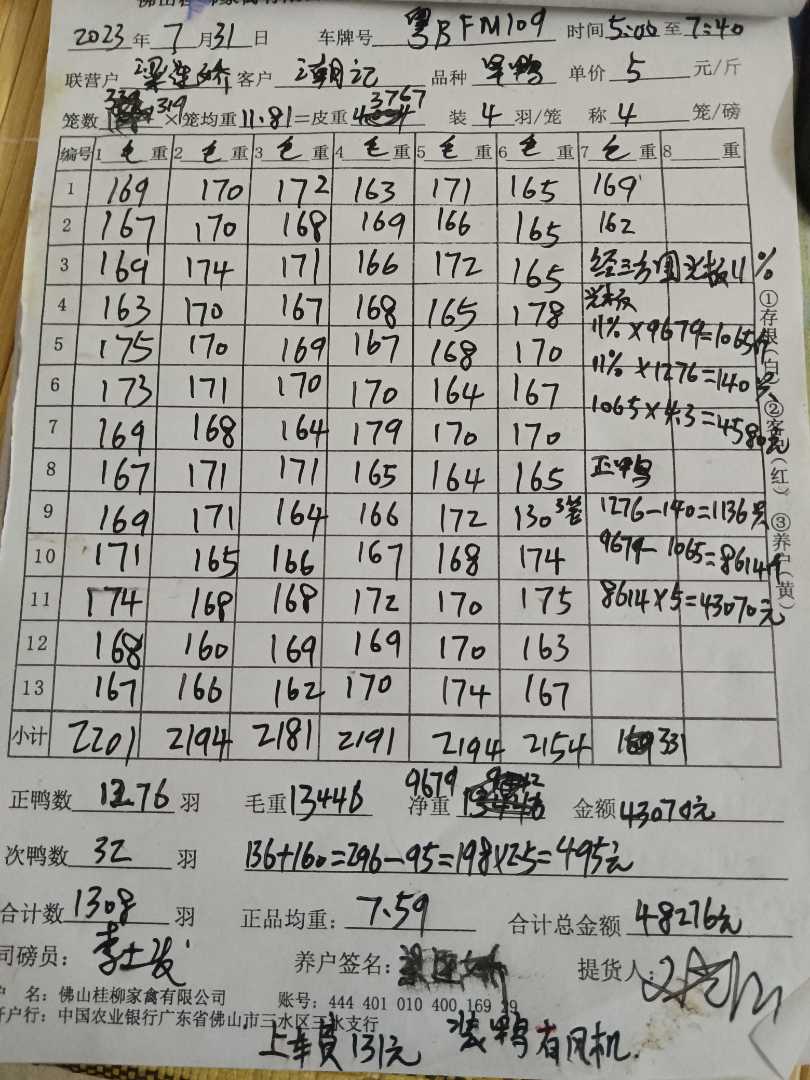 2023年7月31日 车牌号 粤BFM109 时间5:00至7:40
联营户 客户 潮记 品种 旱鸭 单价 5 元/斤
笼数 319 ×1笼均重11.81=皮重 3767 装 4 羽/笼 称 4 笼/磅
编号 1 毛 重 2 毛 重 3 毛 重 4 毛 重 5 毛 重 6 毛 重 7 毛 重 8 重
1 169 170 172 163 171 165 169
2 167 170 168 169 166 165 162
3 169 174 171 166 172 165 经三方围光板11%
4 163 170 167 168 165 178 光板
5 175 170 169 167 168 170 11%×9679=1065斤
6 173 171 170 170 164 167 11%×1276=140只
7 169 168 164 179 170 170 1065×4.3=4580元
8 167 171 171 165 164 165 正鸭
9 169 171 164 166 172 130 3笼 1276-140=1136只
10 171 165 166 167 168 174 9679-1065=8614斤
11 174 168 168 172 170 175 8614×5=43070元
12 168 160 169 169 170 163
13 167 166 162 170 174 167
小计 2201 2194 2181 2191 2194 2154 331
①存根(白)②客(红)③养户(黄)
正鸭数 1276 羽 毛重13446 净重 9679 金额43070元
次鸭数 32 羽 136+160=296-95=198×2.5=495元
合计数 1308 羽 正品均重: 7.59 合计总金额 48276元
司磅员: 养户签名: 提货人:
户 名: 佛山桂柳家禽有限公司 账号: 444 401 010 400 169 29
开户行: 中国农业银行广东省佛山市三水区三水支行
上车费131元 装鸭有风机.